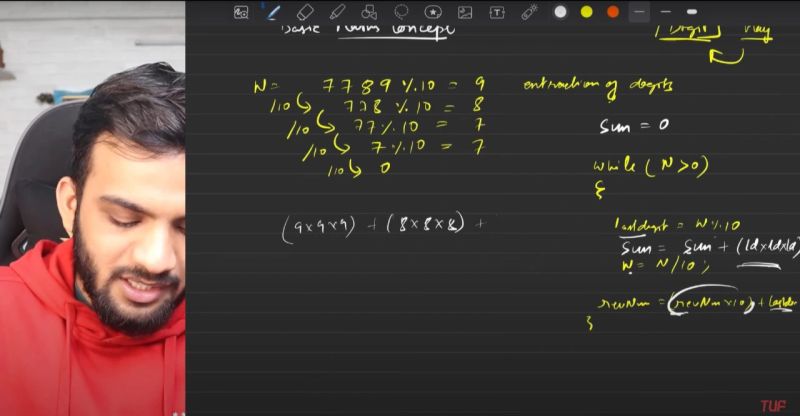 Basic Maths Concept
N = 7789 % 10 = 9
/10 778 % 10 = 8
/10 77 % 10 = 7
/10 7 % 10 = 7
/10 0
(9x9x9) + (8x8x8) +
way
extraction of digits
Sum = 0
while (N>0)
{
lastdigit = N % 10
Sum = Sum + (ld x ld x ld)
N = N/10;
revNum = (revNum x 10) +
}
TUF